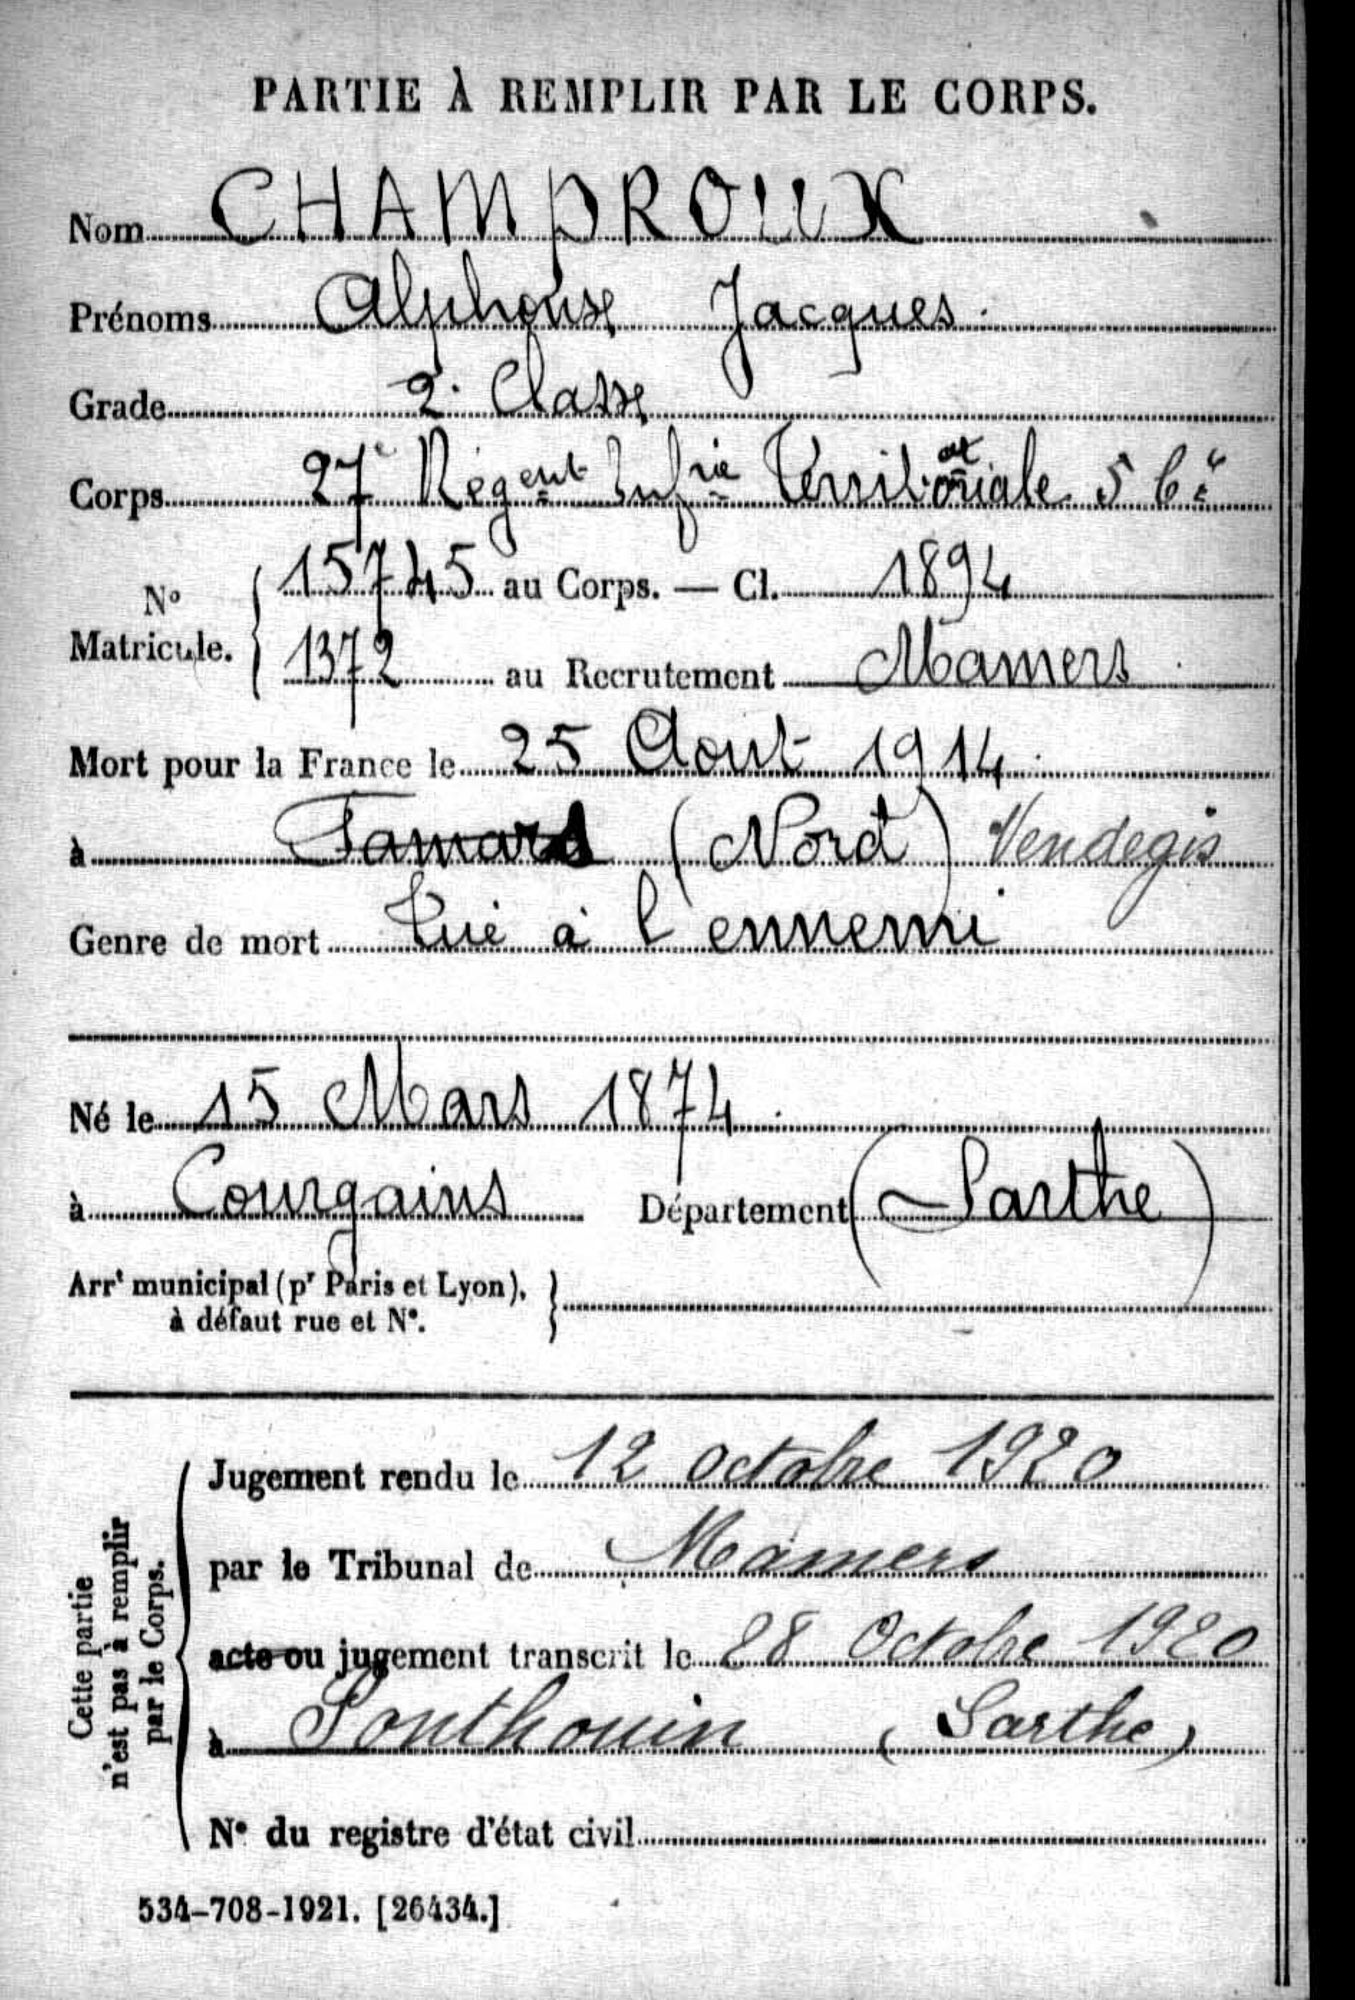 PARTIE À REMPLIR PAR LE CORPS.
Nom CHAMPROUX
Prénoms Alphonse Jacques.
Grade 2e Classe
Corps 27e Régent Infie Territoriale 5 Cie
No Matricule. 15745 au Corps. — Cl. 1894
1372 au Recrutement Mamers
Mort pour la France le 25 Aout 1914.
à Famars (Nord) Vendegis
Genre de mort Tué à l'ennemi
Né le 15 Mars 1874.
à Courgains Département (Sarthe)
Arrt municipal (pr Paris et Lyon),
à défaut rue et No.
Cette partie
n'est pas à remplir
par le Corps.
Jugement rendu le 12 octobre 1920
par le Tribunal de Mamers
acte ou jugement transcrit le 28 Octobre 1920
à Ponthouin (Sarthe)
No du registre d'état civil
534-708-1921. [26434.]